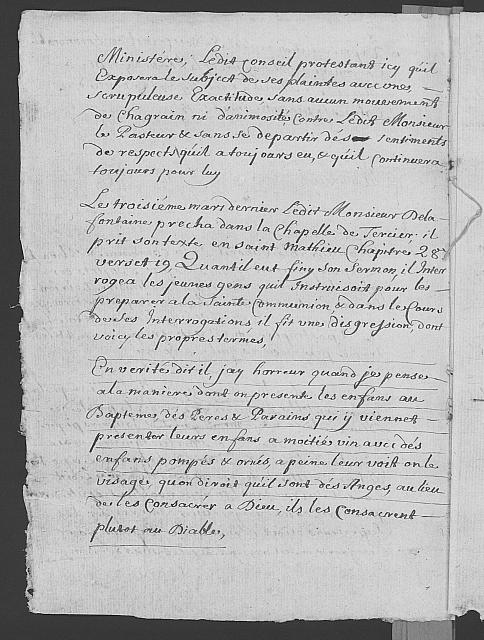 Ministére; Ledit Conseil protestant icy qúil
Exposera le subject de ses plaintes avec une
scrupuleuse Exactitude, sans aucun mouvement
de Chagrain ni danimosité contre Ledit Monsieur
le Pasteur & sans se departir dés sentiments
de respect qúil a toujours eu, & qúil continuera
toujours pour luy
Le troisiéme mars dernier Ledit Monsieur Dela-
fontaine precha dans la Chapelle de Tercier. il
prit son texte en saint Mathieu Chapitre 28
verset 19 Quant il eut finy son sermon, il Inter
rogea les jeunes gens qúil Instruisoit pour les
preparer a la Sainte Communion & dans le Cours
de Ses Interrogations il fit vne disgression, dont
voicy les propres termés,
En verité dit il, jay horreur quand je pense
a la maniere dont on presente les enfans au
Bapteme, dés Peres & Parains qui ij viennet
presenter leurs enfans a moitié vin avec dés
enfans pompés & ornés, a peine leur voit on le
visage, quon diroit quil sont dés Anges, au lieu
de les Consacrér a Dieu, ils les Consacrent
plutot au Diable,